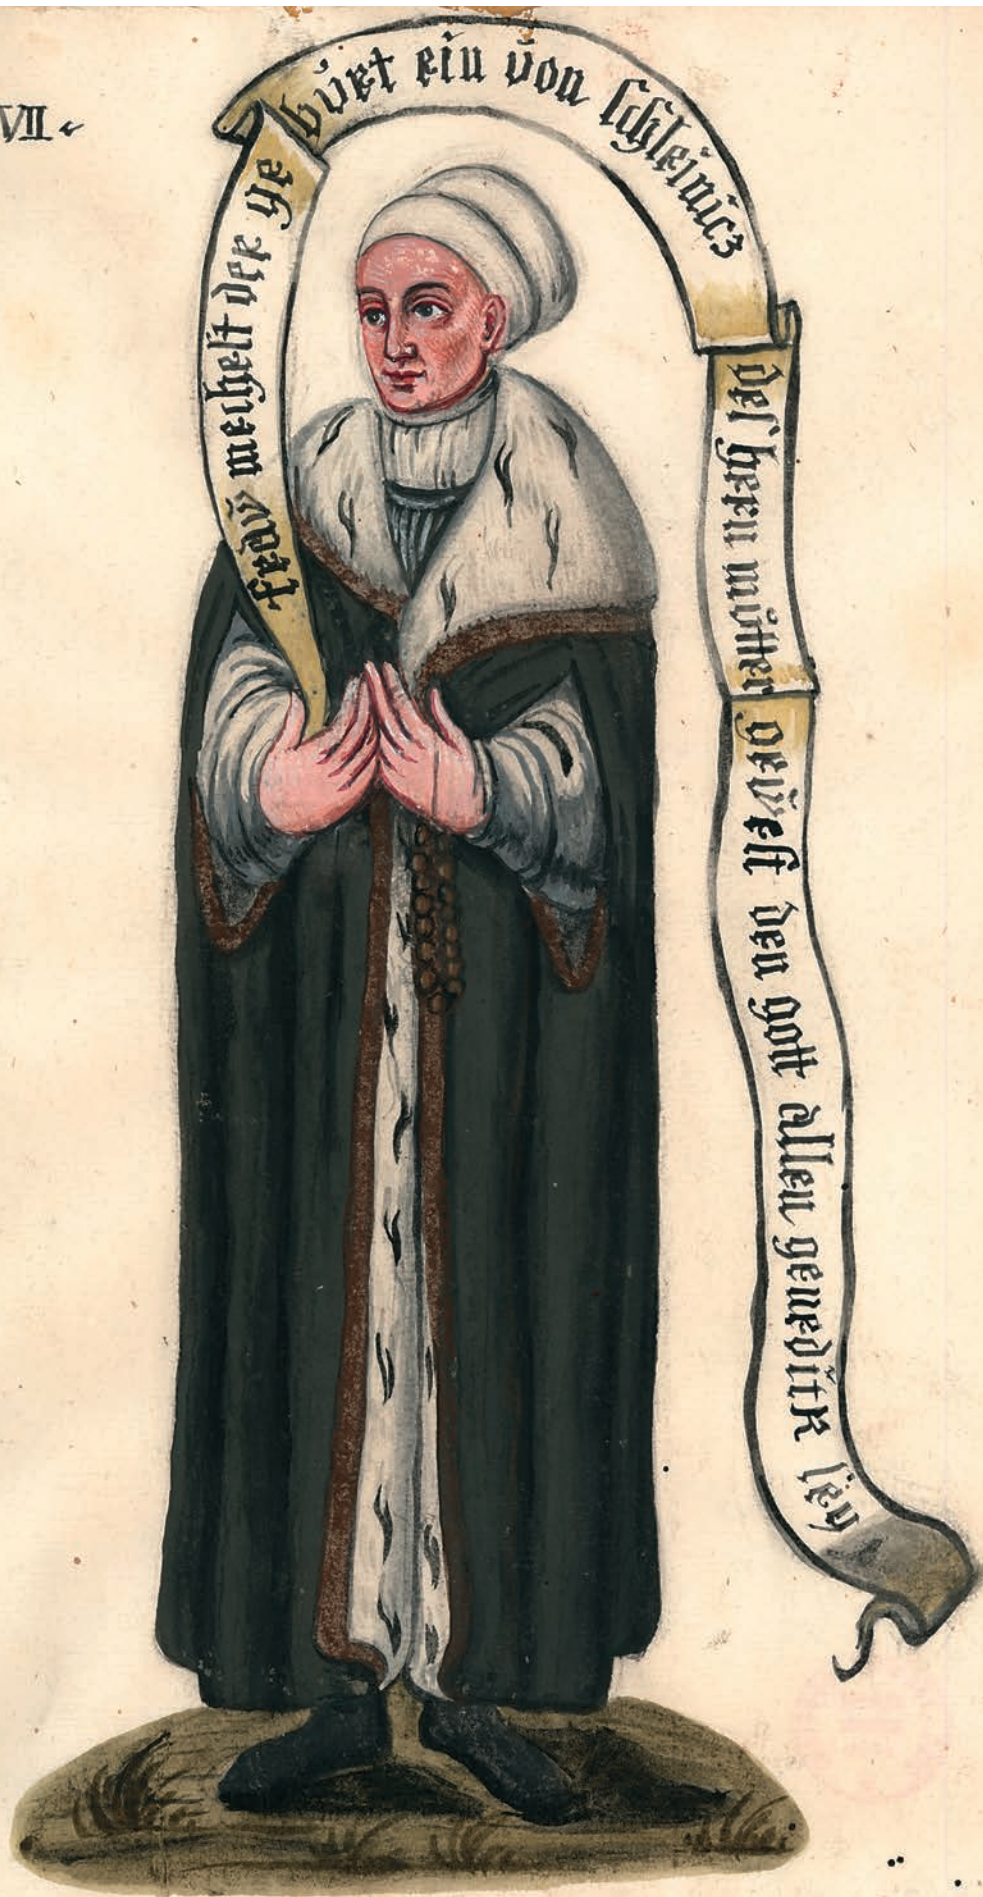 VII
fraw mechelt der ge
bŭrt ein von schleinicz
des hern mŭtter
geŭest den gott allen genedick sey